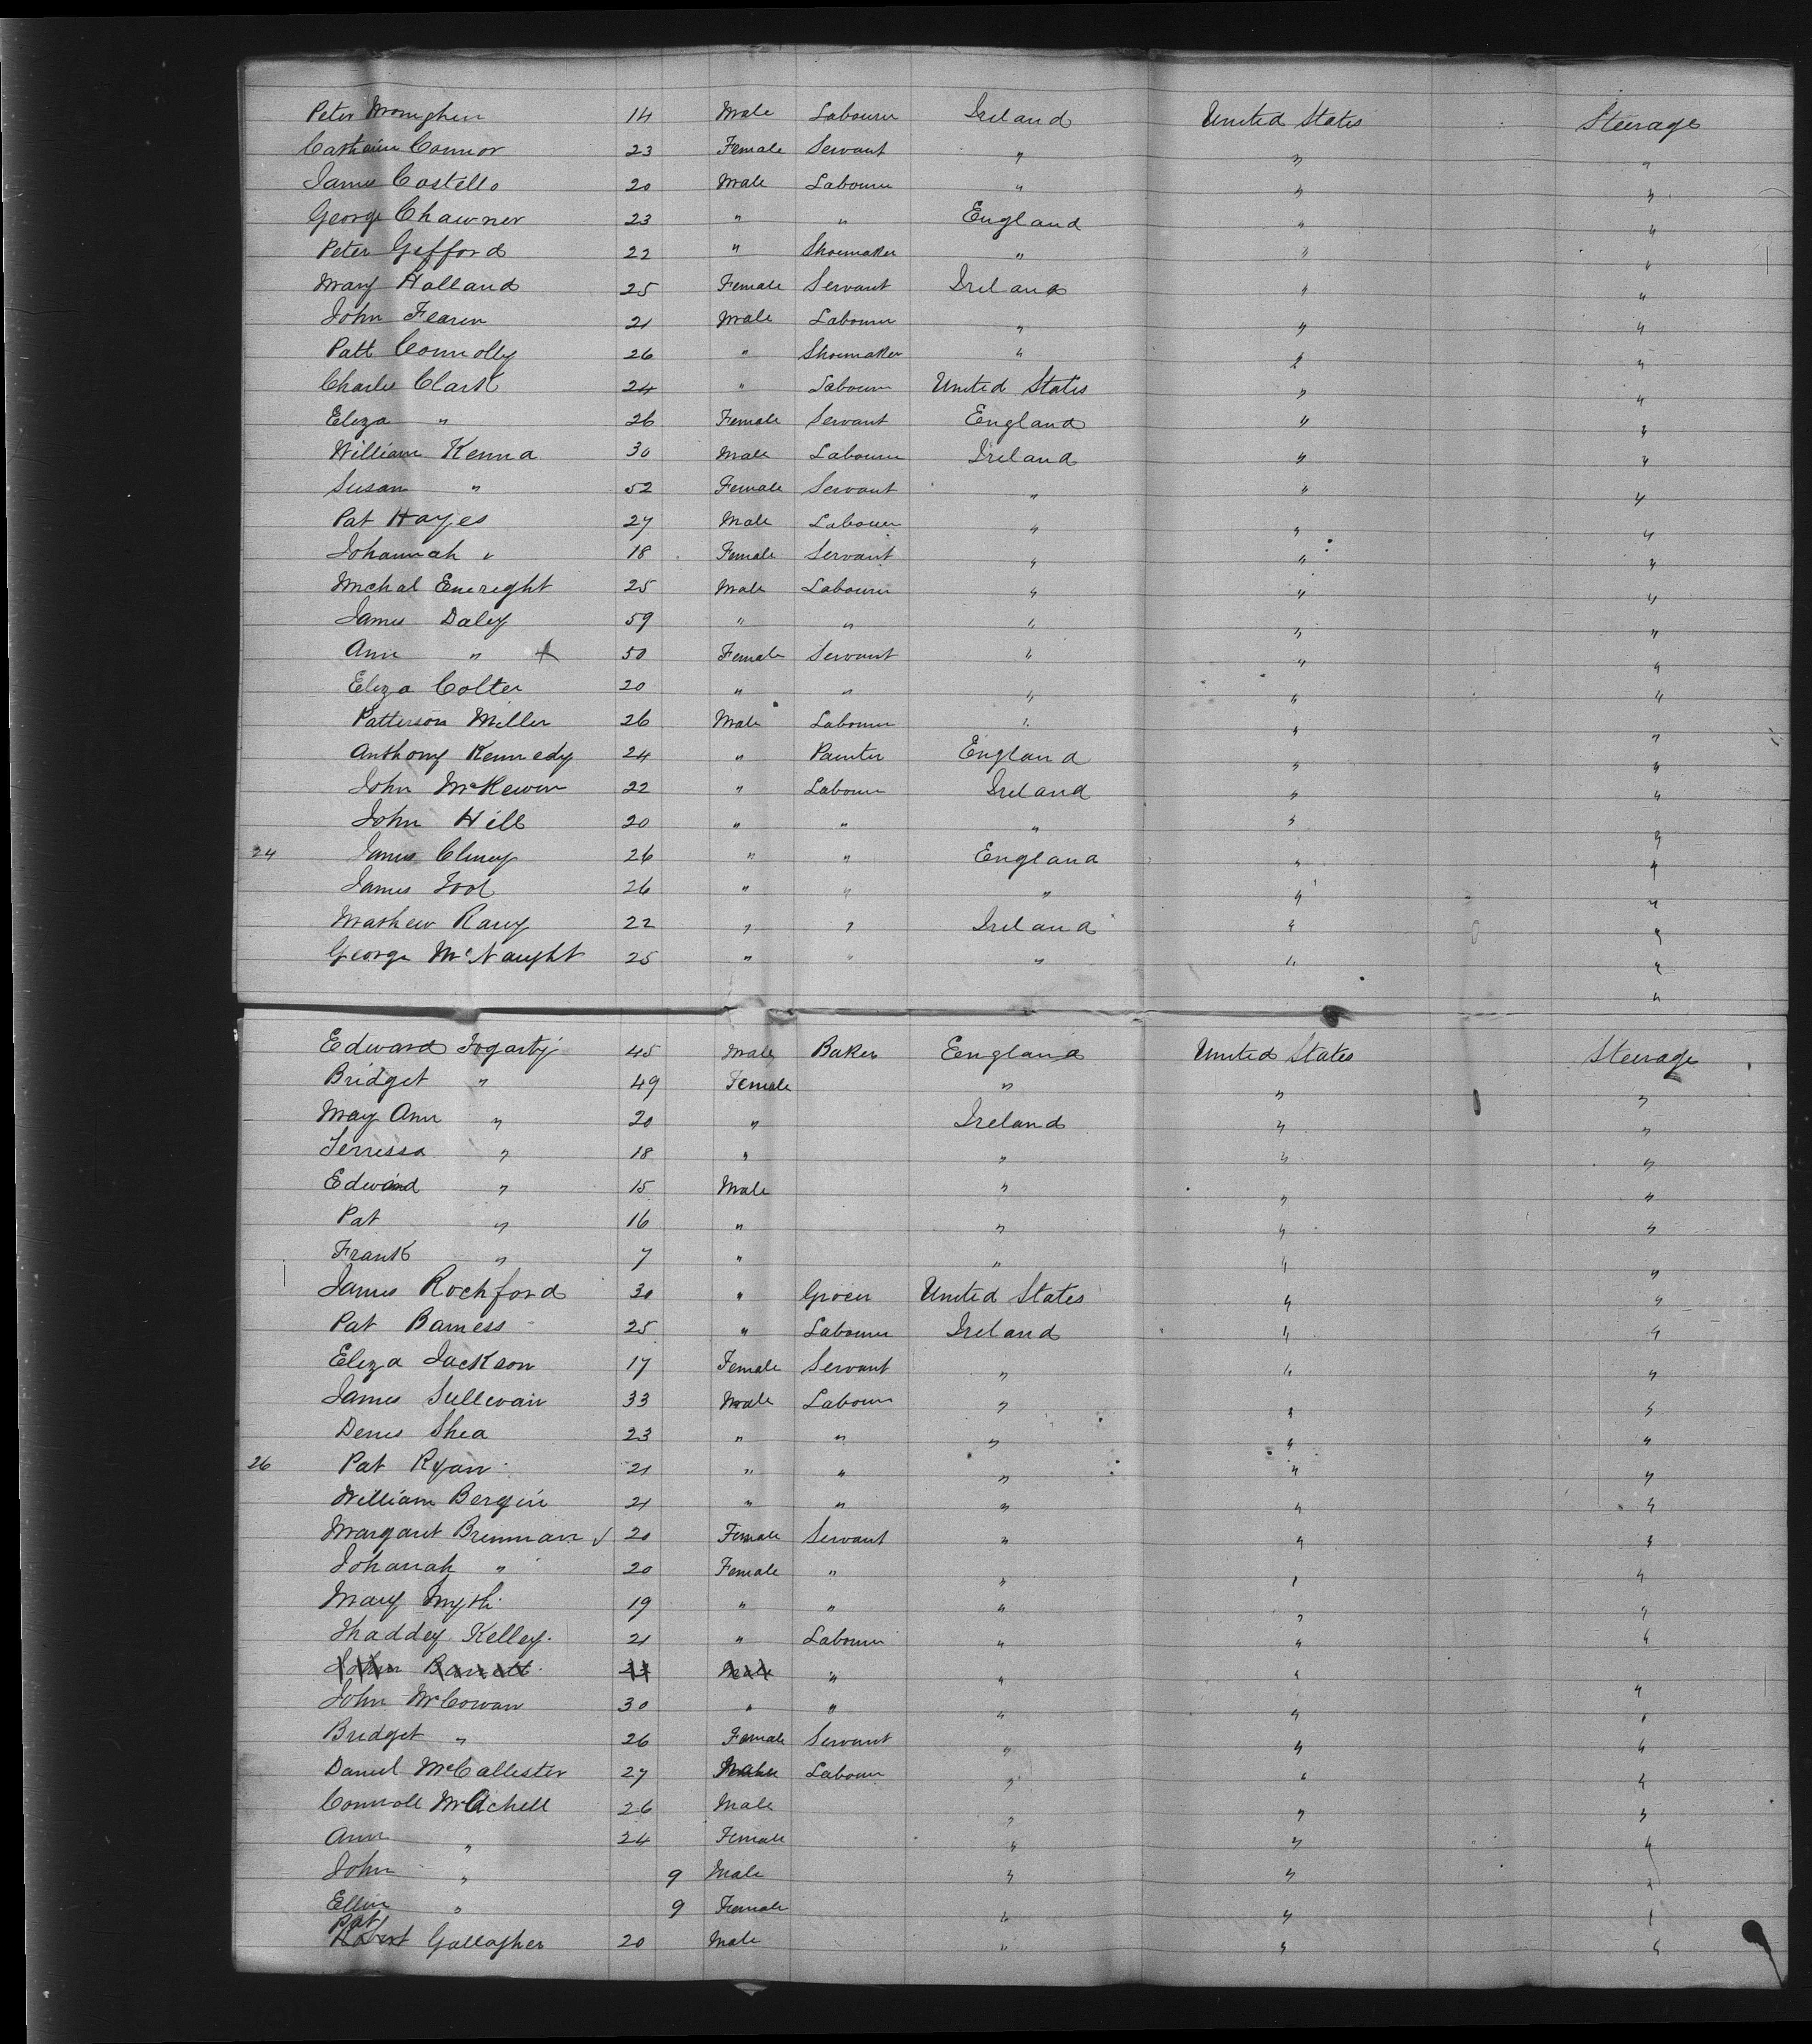 Peter Monighen 14 Male Labourer Ireland United States Steerage
Catharine Connor 23 Female Servant " " "
James Costello 20 Male Labourer " " "
George Chawner 23 " " England " "
Peter Gifford 22 " Shoemaker " " "
Mary Holland 25 Female Servant Ireland " "
John Fearen 21 Male Labourer " " "
Patt Connolly 26 " Shoemaker " " "
Charles Clark 24 " Labourer United States " "
Eliza " 26 Female Servant England " "
William Kenna 30 Male Labourer Ireland " "
Susan " 52 Female Servant " " "
Pat Hayes 27 Male Labourer " " "
Johannah " 18 Female Servant " " "
Michal Eneright 25 Male Labourer " " "
James Daley 59 " " " " "
Ann " + 50 Female Servant " " "
Eliza Colter 20 " " " " "
Patterson Miller 26 Male Labourer " " "
Anthony Kennedy 24 " Painter England " "
John McKewen 22 " Labourer Ireland " "
John Hill 20 " " " " "
24 James Cluney 26 " " England " "
James Tool 26 " " " " "
Mathew Rany 22 " " Ireland " "
George McNaught 25 " " " " "
"
Edward Fogarty 45 Male Baker Eengland United States Steerage
Bridget " 49 Female " " "
May Ann " 20 " Ireland " "
Terressa " 18 " " " "
Edward " 15 Male " " "
Pat " 16 " " " "
Frank " 7 " " " "
James Rochford 30 " Grocer United States " "
Pat Barness 25 " Labourer Ireland " "
Eliza Jackson 17 Female Servant " " "
James Sullivan 33 Male Labourer " " "
Denis Shea 23 " " " " "
26 Pat Ryan 21 " " " " "
William Bergin 21 " " " " "
Margaret Brennan 20 Female Servant " " "
Johanah " 20 Female " " " "
Mary Smyth 19 " " " " "
Thaddey Kelley 21 " Labourer " " "
John Barrett 23 Male " " " "
John McCowan 30 " " " " "
Bridget " 26 Female Servant " " "
Daniel McCallister 27 Male Labourer " " "
Connole McAchell 26 Male " " "
Ann " 24 Female " " "
John " 9 Male " " "
Ellen " 9 Female " " "
Pat Gallagher 20 Male " " "